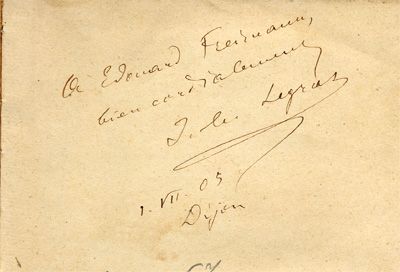 à Edouard Freimann,
bien cordialement
J. Legras
1. VII. 05
Dijon